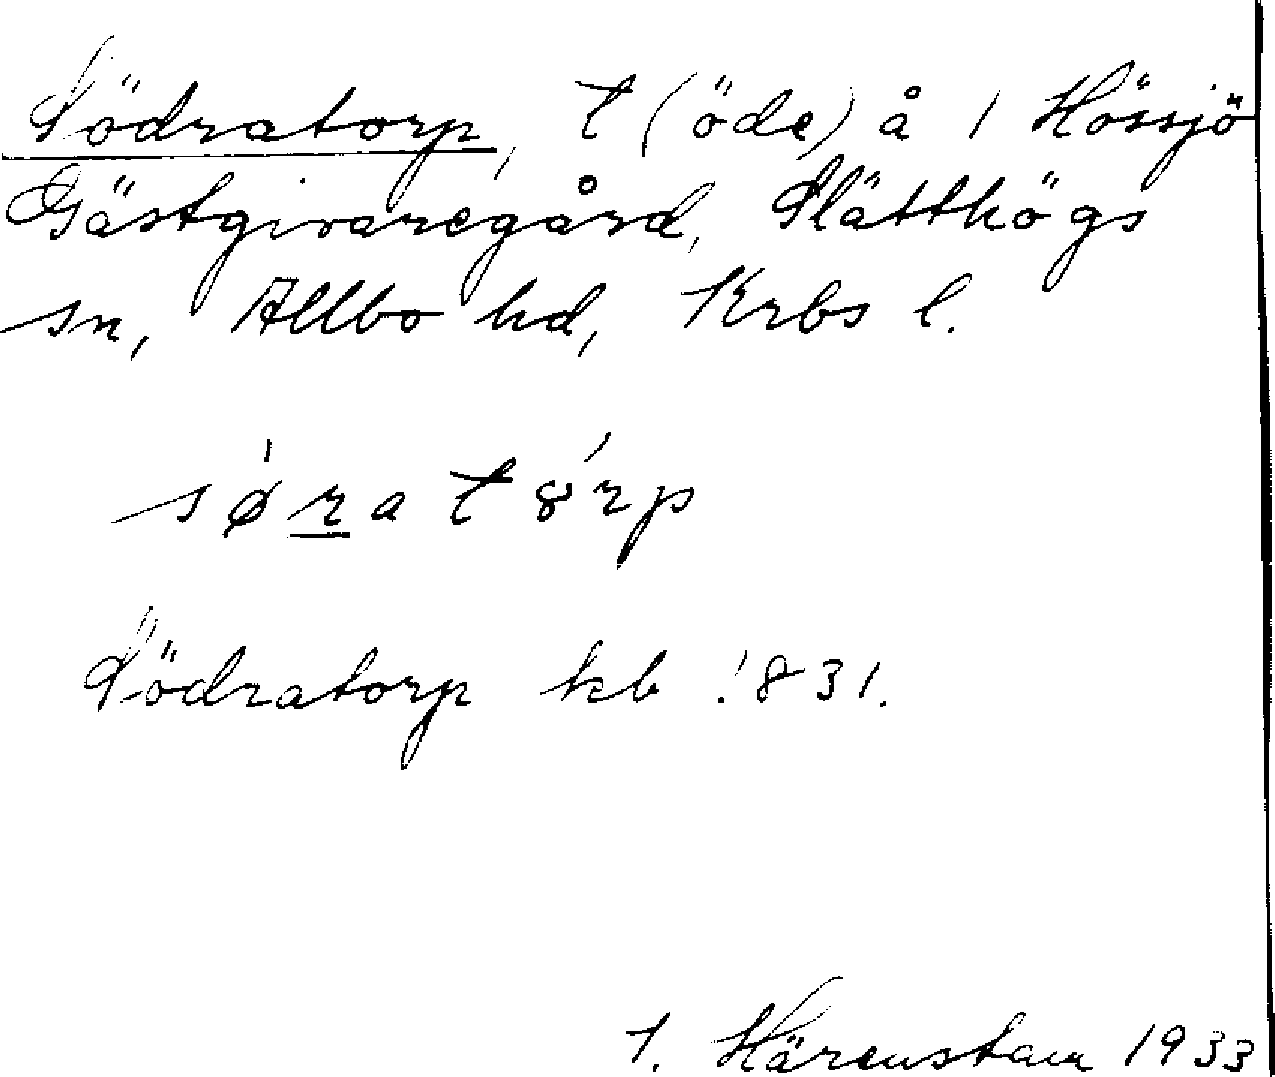 Södratorp, t (öde) å 1 Hössjö
Gästgivaregård, Slätthögs
sn, Allbo hd, Krbs l.
sø̀rat8́rp
Södratorp kb 1831.
1. Härenstam 1933